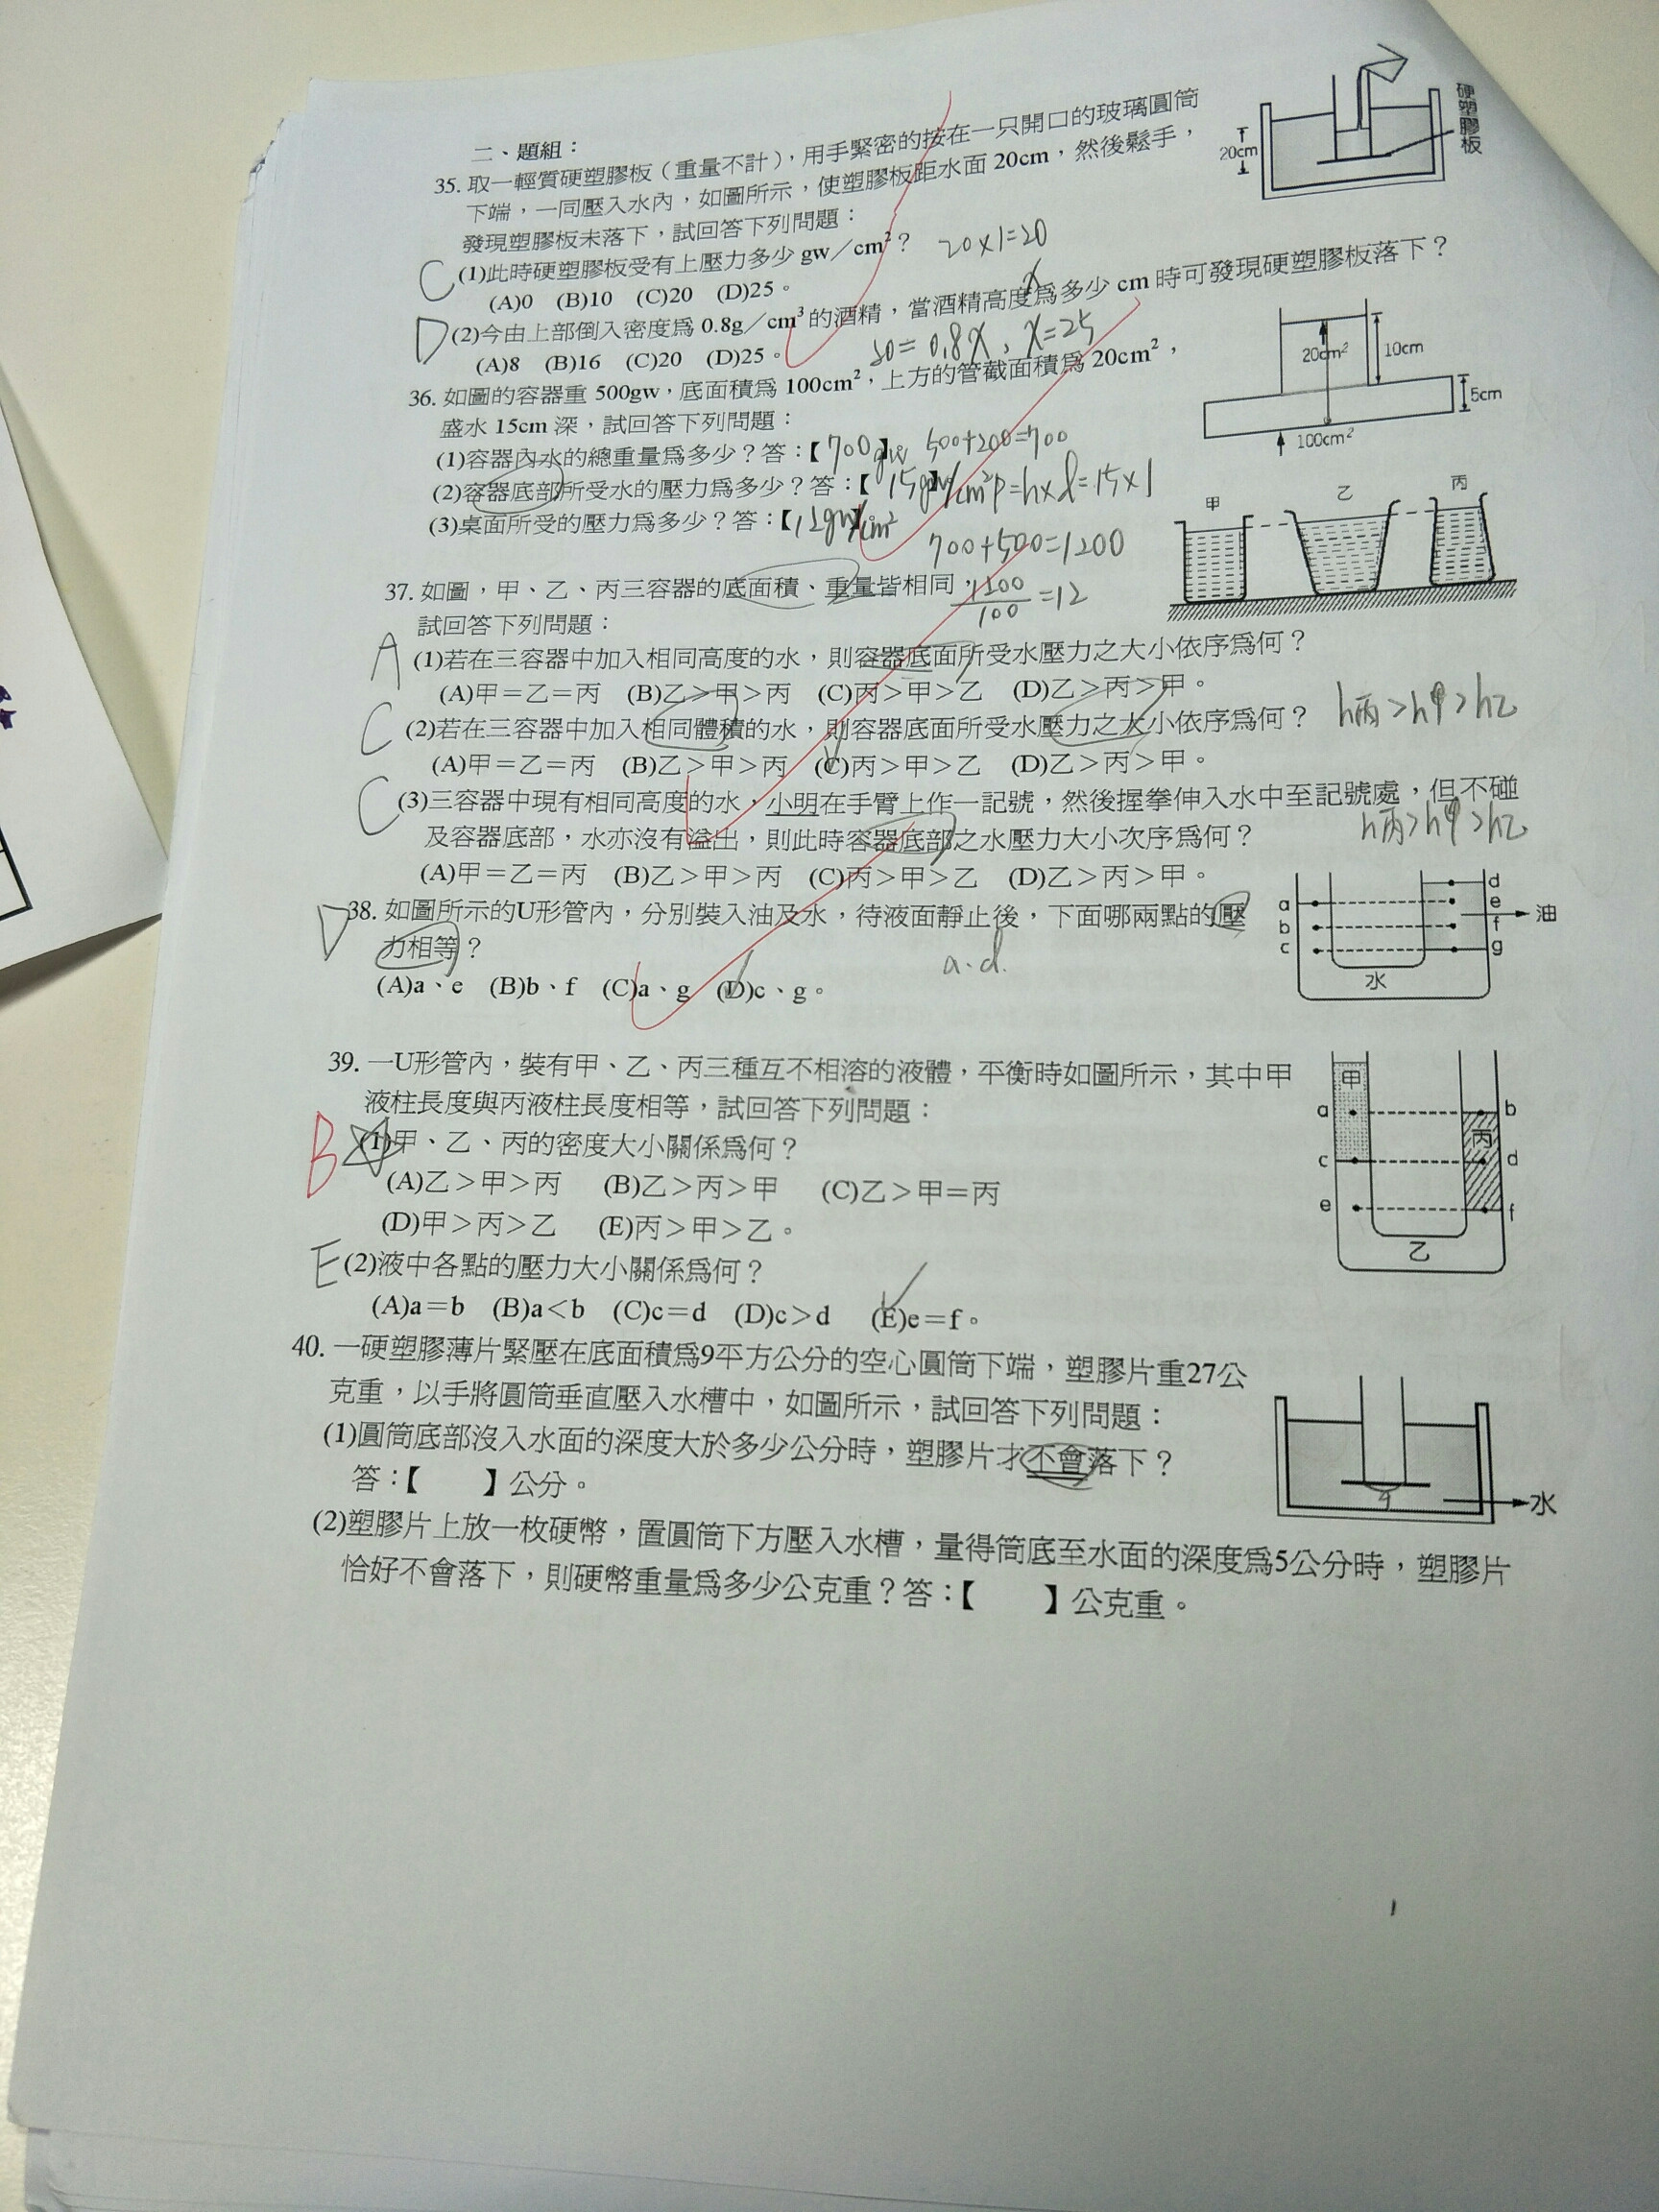 二、題組：
35. 取一輕質硬塑膠板（重量不計），用手緊密的按在一只開口的玻璃圓筒
下端，一同壓入水內，如圖所示，使塑膠板距水面 20cm，然後鬆手，
發現塑膠板未落下，試回答下列問題：
20cm
硬塑膠板
C (1)此時硬塑膠板受有上壓力多少 gw／cm²？ 20×1=20
(A)0 (B)10 (C)20 (D)25。
D (2)今由上部倒入密度為 0.8g／cm³ 的酒精，當酒精高度為多少 cm 時可發現硬塑膠板落下？
x
(A)8 (B)16 (C)20 (D)25。 20=0.8x, x=25
36. 如圖的容器重 500gw，底面積為 100cm²，上方的管截面積為 20cm²，
盛水 15cm 深，試回答下列問題：
20cm²
10cm
5cm
100cm²
(1)容器內水的總重量為多少？答：【700gw】 500+200=700
(2)容器底部所受水的壓力為多少？答：【15gw】/cm² P=h×d=15×1
(3)桌面所受的壓力為多少？答：【12gw】/cm²
700+500=1200
37. 如圖，甲、乙、丙三容器的底面積、重量皆相同， 1200/100=12
試回答下列問題：
甲 乙 丙
A (1)若在三容器中加入相同高度的水，則容器底面所受水壓力之大小依序為何？
(A)甲＝乙＝丙 (B)乙＞甲＞丙 (C)丙＞甲＞乙 (D)乙＞丙＞甲。
C (2)若在三容器中加入相同體積的水，則容器底面所受水壓力之大小依序為何？ h丙>h甲>h乙
(A)甲＝乙＝丙 (B)乙＞甲＞丙 (C)丙＞甲＞乙 (D)乙＞丙＞甲。
C (3)三容器中現有相同高度的水，小明在手臂上作一記號，然後握拳伸入水中至記號處，但不碰
及容器底部，水亦沒有溢出，則此時容器底部之水壓力大小次序為何？ h丙>h甲>h乙
(A)甲＝乙＝丙 (B)乙＞甲＞丙 (C)丙＞甲＞乙 (D)乙＞丙＞甲。
D 38. 如圖所示的U形管內，分別裝入油及水，待液面靜止後，下面哪兩點的壓
力相等？ a.d.
(A)a、e (B)b、f (C)a、g (D)c、g。
a
b
c
d
e
f
g
油
水
39. 一U形管內，裝有甲、乙、丙三種互不相溶的液體，平衡時如圖所示，其中甲
液柱長度與丙液柱長度相等，試回答下列問題：
B (1)甲、乙、丙的密度大小關係為何？
(A)乙＞甲＞丙 (B)乙＞丙＞甲 (C)乙＞甲＝丙
(D)甲＞丙＞乙 (E)丙＞甲＞乙。
E (2)液中各點的壓力大小關係為何？
(A)a＝b (B)a＜b (C)c＝d (D)c＞d (E)e＝f。
甲
a b
丙
c d
e f
乙
40. 一硬塑膠薄片緊壓在底面積為9平方公分的空心圓筒下端，塑膠片重27公
克重，以手將圓筒垂直壓入水槽中，如圖所示，試回答下列問題：
(1)圓筒底部沒入水面的深度大於多少公分時，塑膠片才不會落下？
答：【 】公分。
9
水
(2)塑膠片上放一枚硬幣，置圓筒下方壓入水槽，量得筒底至水面的深度為5公分時，塑膠片
恰好不會落下，則硬幣重量為多少公克重？答：【 】公克重。